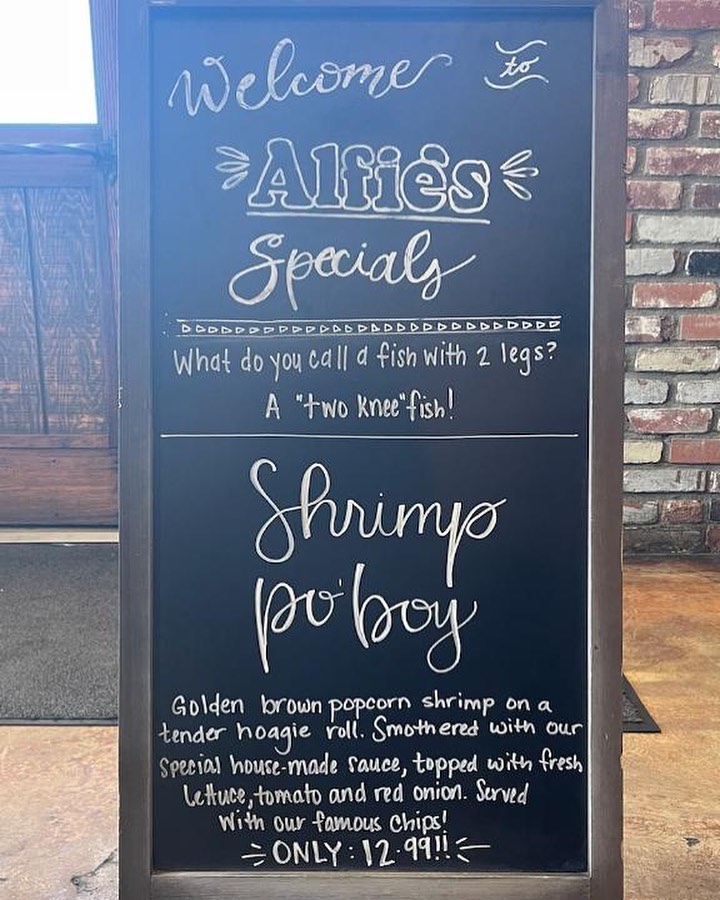 Welcome to
Alfie's
Specials
What do you call a fish with 2 legs?
A "two knee" fish!
Shrimp
po'boy
Golden brown popcorn shrimp on a
tender hoagie roll. Smothered with our
special house-made sauce, topped with fresh
lettuce, tomato and red onion. Served
with our famous chips!
ONLY: 12.99!!